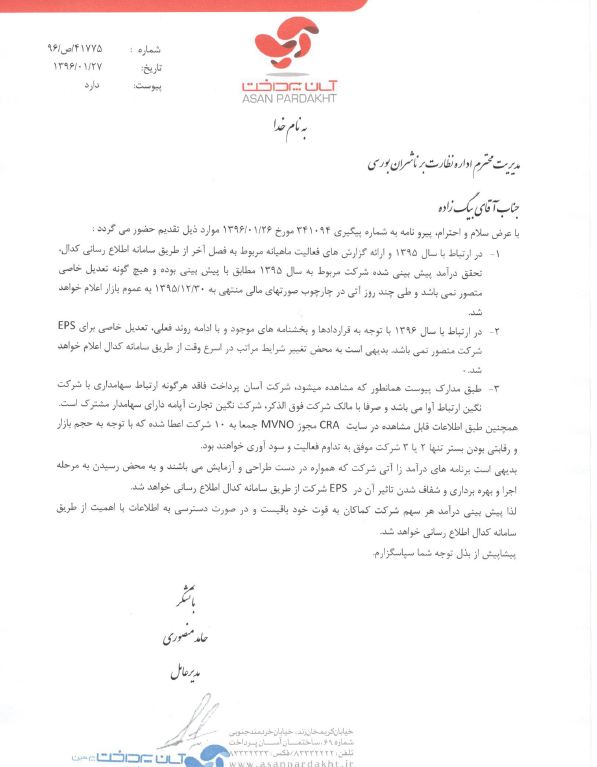 شماره : ۹۶/ص/۴۱۷۷۵
تاریخ: ۱۳۹۶/۰۱/۲۷
پیوست: دارد
آسان پرداخت
ASAN PARDAKHT
به نام خدا
مدیریت محترم اداره نظارت بر ناشران بورسی
جناب آقای بیگ زاده
با عرض سلام و احترام، پیرو نامه به شماره پیگیری ۳۴۱۰۹۴ مورخ ۱۳۹۶/۰۱/۲۶ موارد ذیل تقدیم حضور می گردد :
۱- در ارتباط با سال ۱۳۹۵ و ارائه گزارش های فعالیت ماهیانه مربوط به فصل آخر از طریق سامانه اطلاع رسانی کدال،
تحقق درآمد پیش بینی شده شرکت مربوط به سال ۱۳۹۵ مطابق با پیش بینی بوده و هیچ گونه تعدیل خاصی
متصور نمی باشد و طی چند روز آتی در چارچوب صورتهای مالی منتهی به ۱۳۹۵/۱۲/۳۰ به عموم بازار اعلام خواهد
شد.
۲- در ارتباط با سال ۱۳۹۶ با توجه به قراردادها و بخشنامه های موجود و با ادامه روند فعلی، تعدیل خاصی برای EPS
شرکت متصور نمی باشد. بدیهی است به محض تغییر شرایط مراتب در اسرع وقت از طریق سامانه کدال اعلام خواهد
شد.۰
۳- طبق مدارک پیوست همانطور که مشاهده میشود، شرکت آسان پرداخت فاقد هرگونه ارتباط سهامداری با شرکت
نگین ارتباط آوا می باشد و صرفا با مالک شرکت فوق الذکر، شرکت نگین تجارت آپامه دارای سهامدار مشترک است.
همچنین طبق اطلاعات قابل مشاهده در سایت CRA مجوز MVNO جمعا به ۱۰ شرکت اعطا شده که با توجه به حجم بازار
و رقابتی بودن بستر تنها ۲ یا ۳ شرکت موفق به تداوم فعالیت و سود آوری خواهند بود.
بدیهی است برنامه های درآمد زا آتی شرکت که همواره در دست طراحی و آزمایش می باشند و به محض رسیدن به مرحله
اجرا و بهره برداری و شفاف شدن تاثیر آن در EPS شرکت از طریق سامانه کدال اطلاع رسانی خواهد شد.
لذا پیش بینی درآمد هر سهم شرکت کماکان به قوت خود باقیست و در صورت دسترسی به اطلاعات با اهمیت از طریق
سامانه کدال اطلاع رسانی خواهد شد.
پیشاپیش از بذل توجه شما سپاسگزارم.
باتشکر
حامد منصوری
مدیرعامل
خیابان کریمخان زند، خیابان خردمند جنوبی
شماره ۶۹، ساختمان آسان پرداخت
تلفن: ۸۳۳۳۲۲۲۲ / فکس: ۸۳۳۳۲۳۳۳
www.asanpardakht.ir
آسان پرداخت